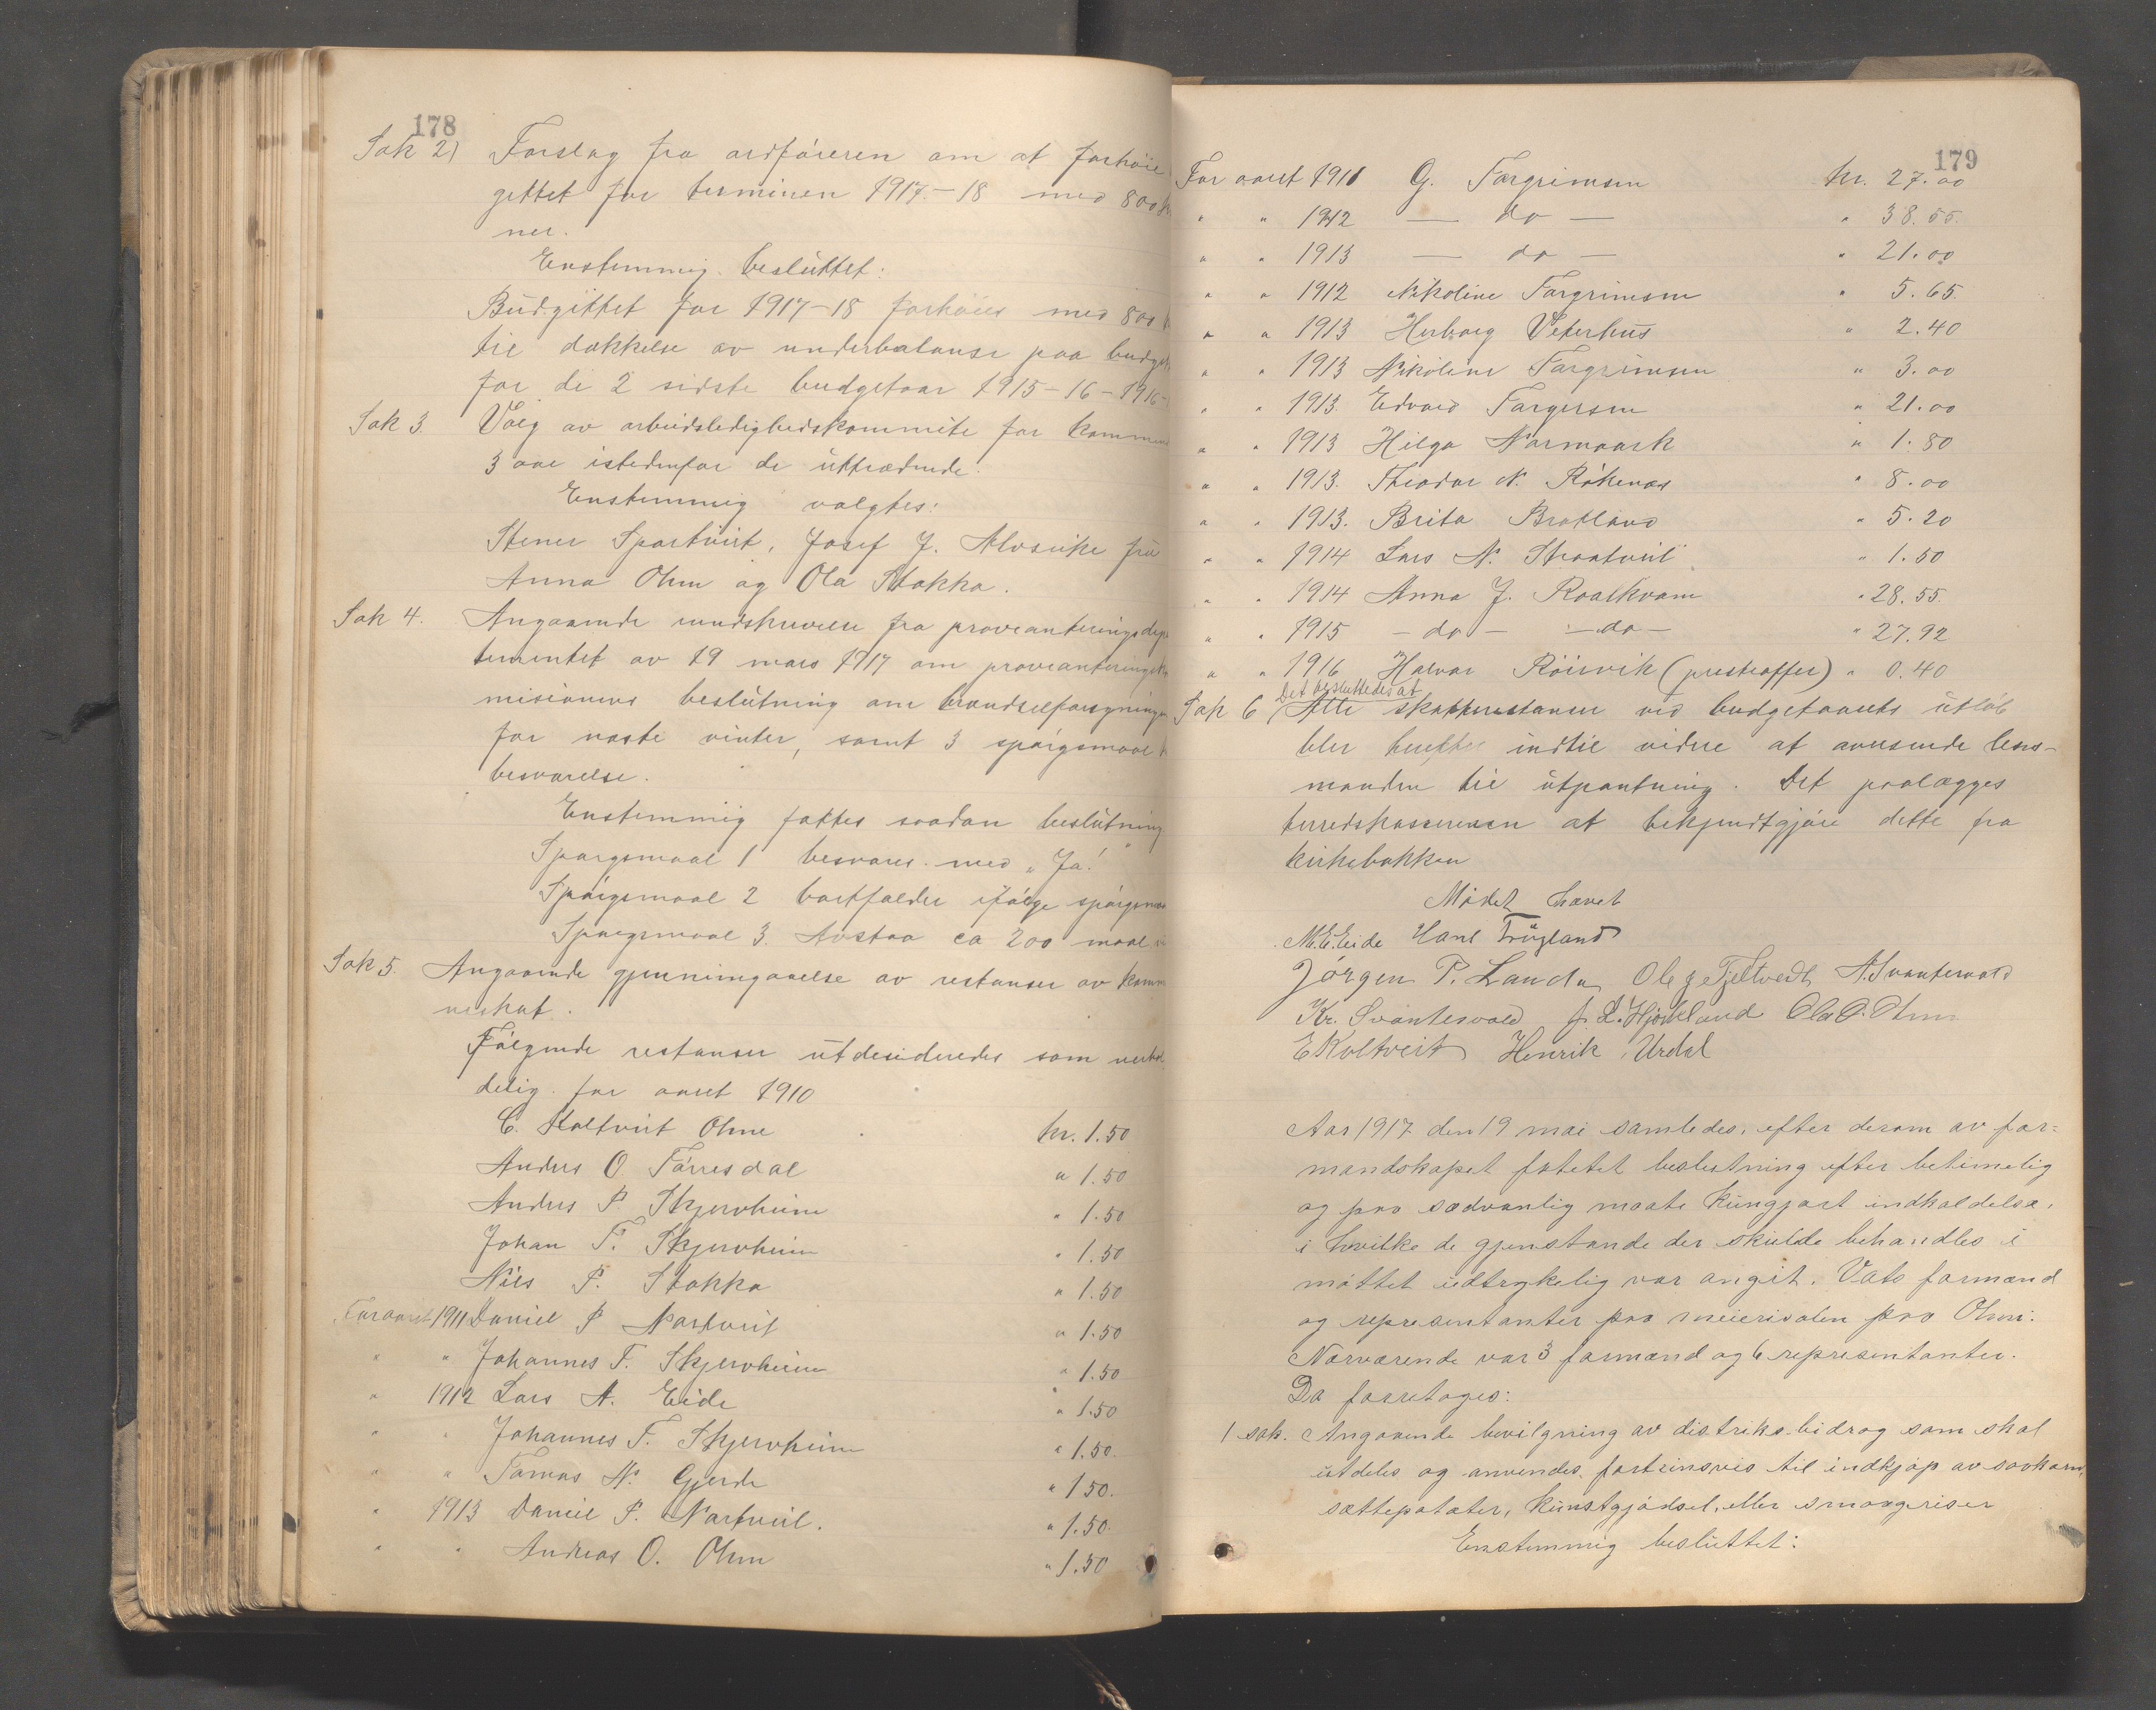 178
Sak 2) Forslag fra ordföreren om at forhöie
gettet for terminen 1917-18 med 800
ner.
Enstemmig besluttet:
Budgettet for 1917-18 forhöies med 800
til dækkelse av underbalanse paa budget
for de 2 sidste budgetaar 1915-16-1916-
Sak 3. Valg av arbeidsledighedskommite for komme
3 aar istedenfor de uttrædende.
Enstemmig valgtes:
Stener Sportveit, Josef J. Alvseike fru
Anna Ohm og Ola Stakka.
Sak 4. Angaaende rundskrivelse fra provianteringsdep
tementet av 19 mars 1917 om provianterings
misionens beslutning om brændselforsyningen
for næste vinter, samt 3 spörgsmaal
besvarelse.
Enstemmig fattes saadan beslutning
Spörgsmaal 1 besvares med „Ja!"
Spörgsmaal 2 bortfalder ifölge spörgsmaa
Spörgsmaal 3. Avstaa ca 200 maal
Sak 5. Angaaende gjennimgaaelse av restanser av komm
neskat.
Fölgende restanser utdesideredes som uerhol
delig for aaret 1910
C. Koltveit Ohme kr. 1.50
Anders O. Törresdal " 1.50
Anders P. Skjervheim " 1.50
Johan T. Skjervheim " 1.50
Nils P. Stakka " 1.50
For aaret 1911 Daniel P Nortveit " 1.50
" " Johannes T. Skjervheim " 1.50
" 1912 Lars A. Eide " 1.50
" " Johannes T. Skjervheim " 1.50.
" " Tomas N. Gjerde " 1 50.
" 1913 Daniel P. Nortveit. " 1.50.
" " Andreas O. Ohm " 1.50
179
For aaret 1911 G. Torgrimsen kr. 27.00
" " 1912 — do — " 38.55.
" " 1913 — do — " 21.00
" " 1912 Nikoline Torgrimsen " 5.65.
" " 1913 Herborg Veterhus " 2.40
" " 1913 Nikoline Torgrimsen " 3.00
" " 1913. Edvard Torgersen " 21.00
" " 1913 Helga Normaark " 1.80
" " 1913. Theodor N. Rökenes " 8.00
" " 1913. Brita Bratland " 5.20
" " 1914 Lars N. Straatveit " 1.50
" " 1914 Anna J. Roalkvam " 28.55.
" " 1915 - do - - do - " 27.92
" " 1916 Halvor Röisvik (presteoffer) " 0.40
Det besluttedes at
Sak 6 Alle skatterestanser ved budgetaarets utlöb
blir herefter indtil videre at avsende lens-
manden til utpantning. Det paalægges
herredskassereren at bekjendtgjöre dette fra
kirkebakken
Mödet hævet
M. E. Eide Hans Trügland
Jörgen P. Landa Ole J Tjeltvedt A. Svantesvold
Kr. Svantesvold J. L. Hjortland Ola O. Ohm
E Koltveit Henrik Urdal
Aar 1917 den 19 mai samledes, efter derom av for=
mandskapet fatetet beslutning efter betimelig
og paa sædvanlig maate kungjort indkaldelse,
i hvilke de gjenstande der skulde behandles i
möttet udtrykelig var angit. Vats formænd
og representanter paa meierisalen paa Ohm:
Nærværende var 3 formænd og 6 representanter.
Da foretoges:
1 sak. Angaaende bevilgning av distriks bidrag som skal
utdeles og anvendes fortrinsvis til indkjöp av saakorn,
sættepotater, kunstgjödsel, eller smaagriser
Enstemmig besluttet: